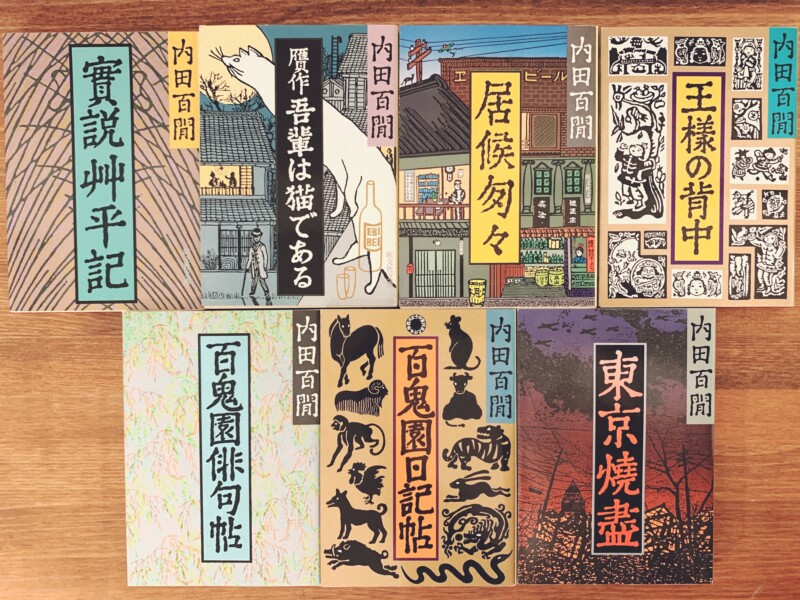 實説艸平記
内田百閒
贋作 吾輩は猫である
内田百閒
EBI
BEE
居候匆々
内田百閒
ビール
王様の背中
内田百閒
百鬼園俳句帖
内田百閒
百鬼園日記帖
内田百閒
東京燒盡
内田百閒